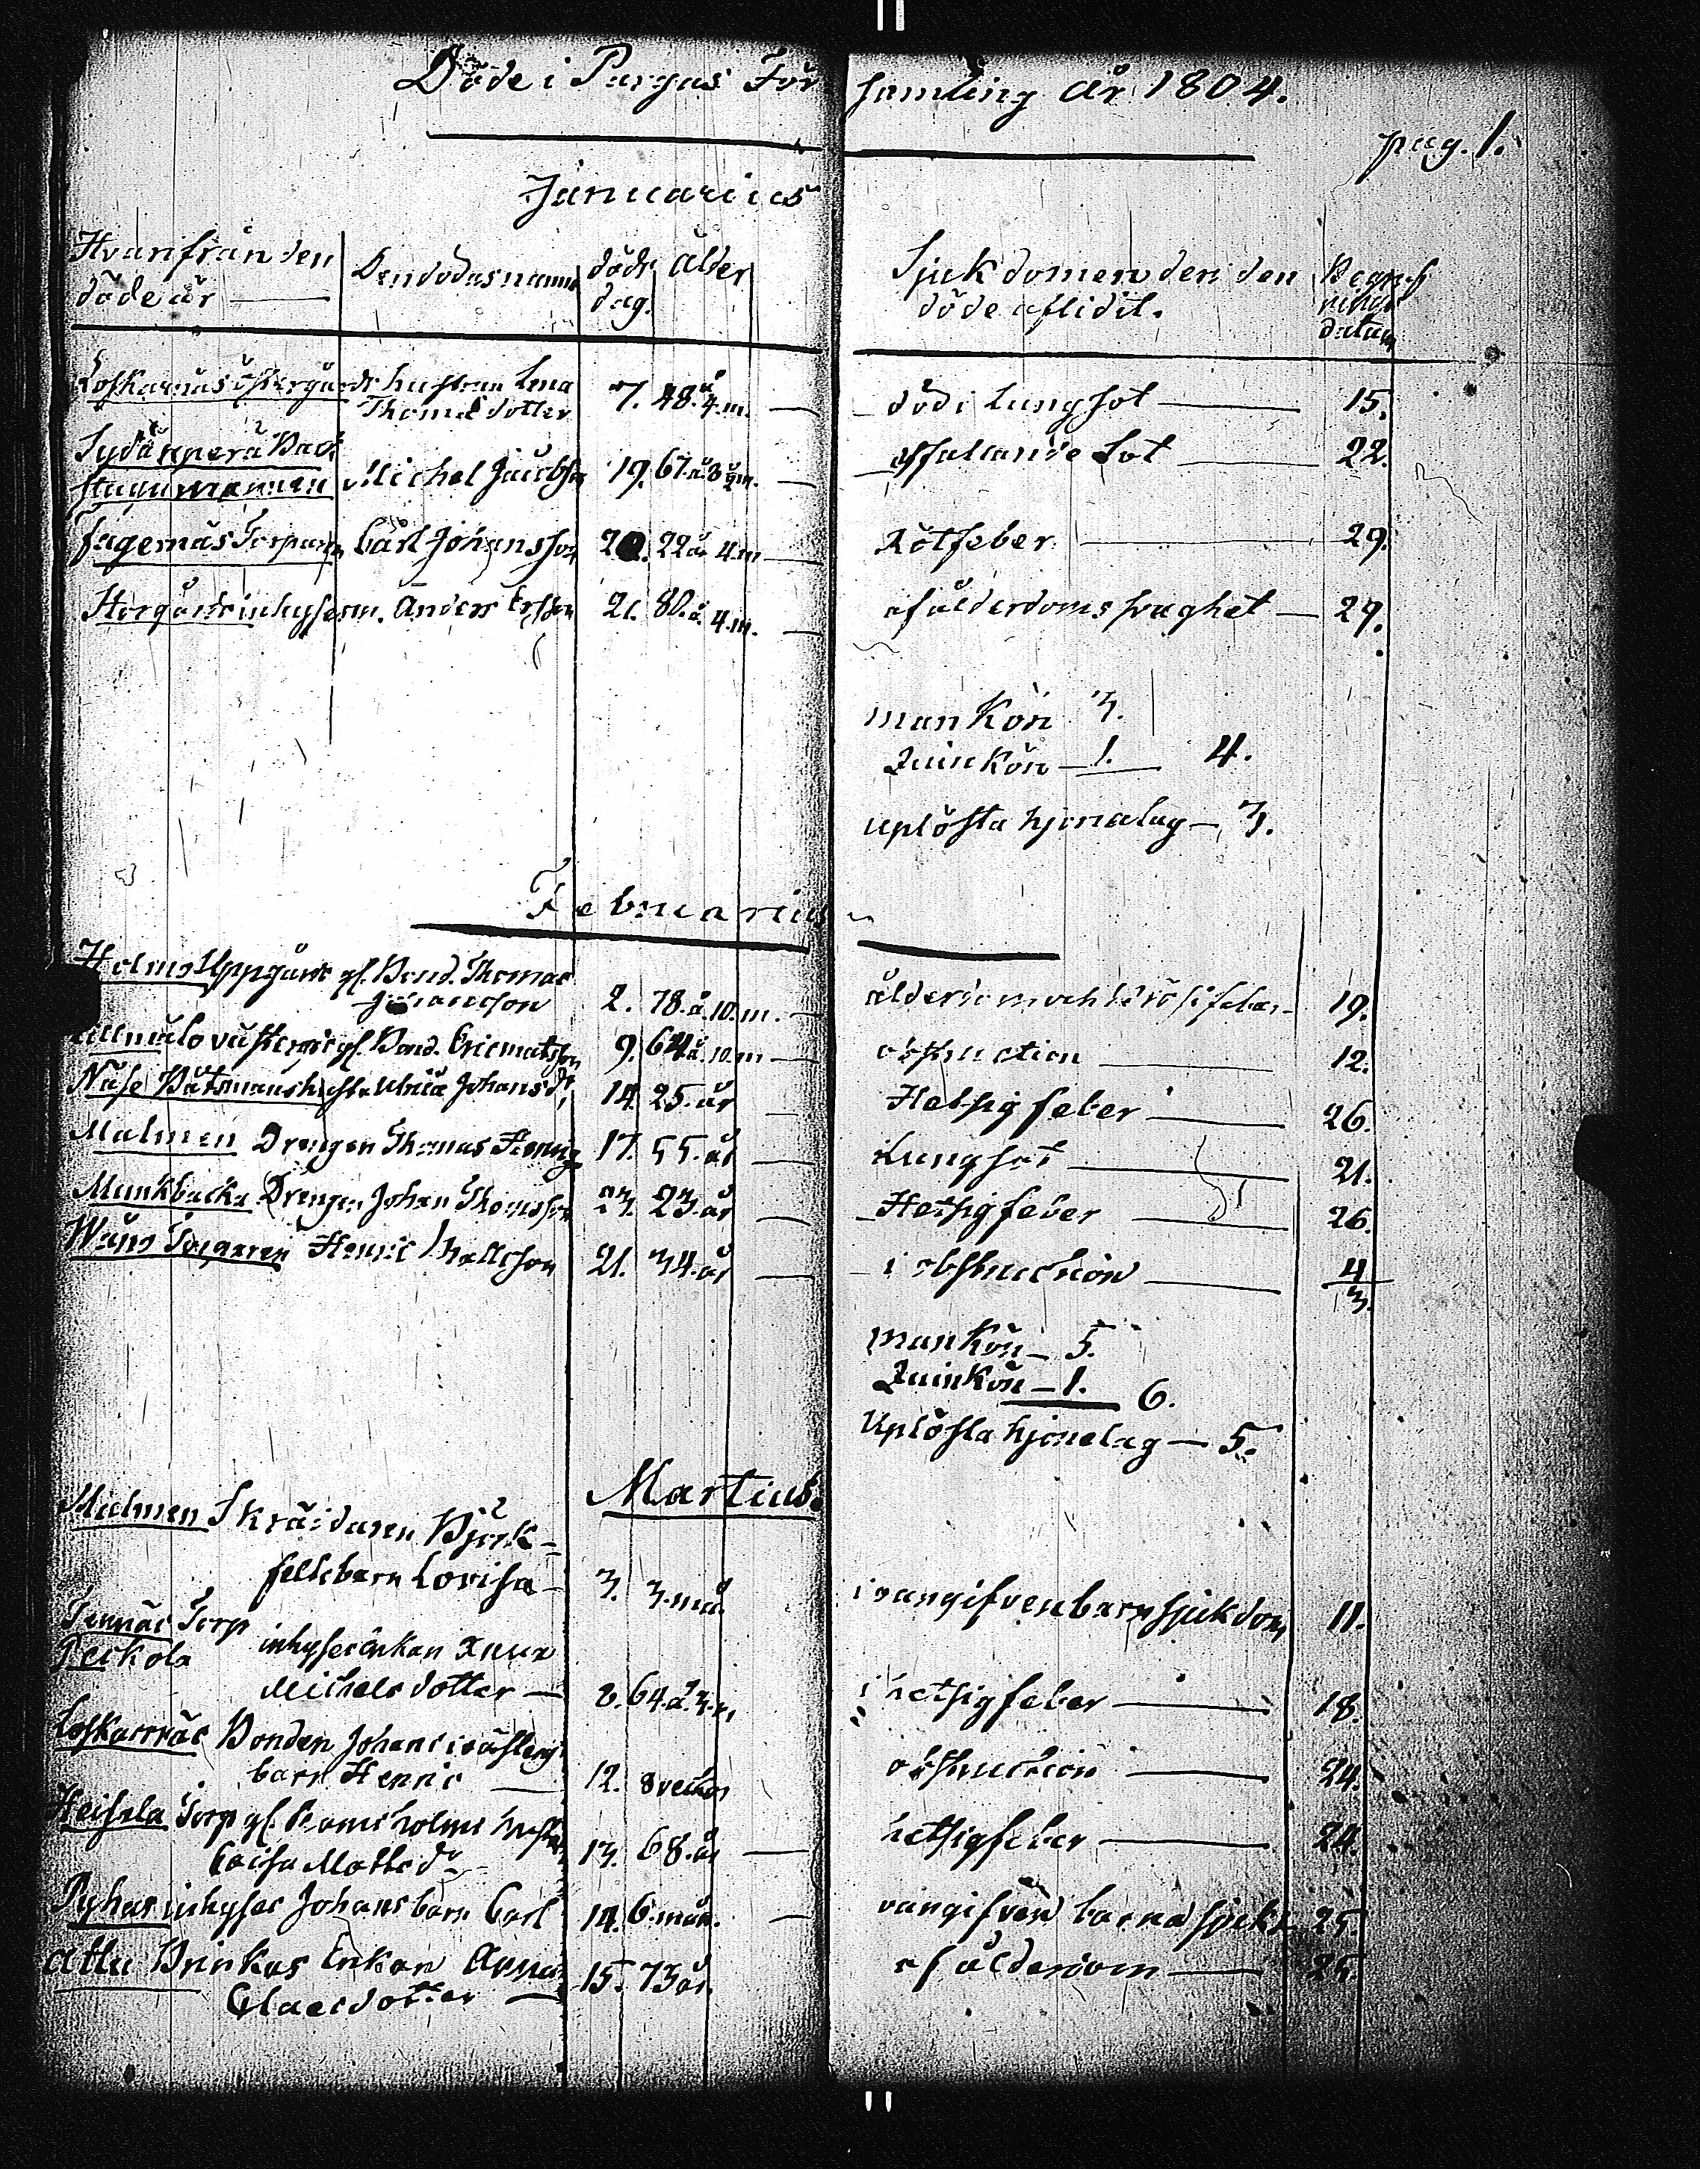 Döde i Pargas Församling år 1804.
pag. 1.
Januarius
Hvarifrån den döde är
Den dödas namn
döds dag.
ålder
Sjukdomen den den döde aflidit.
Begrafnings datum
Loskarnäs östergårds hustrun Lena
Thomas dotter 7. 48. å 4. m. död i Lungsot 15.
Sydänperä Back
stugumannen Michel Jacobsson 19. 67. å. 8 ½ m. affallande Sot 22.
Fagernäs Torparen Carl Johansson 20. 22 år 4. m Rötfeber 29.
Storgårds inhysesm. Anders Ersson 21. 80. å. 4. m. af ålderdoms svaghet 29.
mankön 3.
Quinkön 1. 4.
uplösta hjonalag 3.
Februarius
Holms Uppgårds gl. Bond. Thomas
Johansson 2. 78. å. 10. m. ålderdom och 19.
västergårds gl. Bond. Eric Matsson 9. 64 å. 10. m obstruction 12.
Näse Båtsmans hustr. Ulrica Johansdr 14. 25. år Hetsig feber 26.
Malmen Drengen Thomas 17. 55. år Lungsot 21.
Munkbacka Drengen Johan Thomsson 23. 23. år Hetsig feber 26.
Torparen Henric Mattsson 21. 34. år i obstruction 4/3.
mankön 5.
Quinkön 1. 6.
Uplösta hjonelag 5.
Martius.
Malmen Skräddaren Björk-
felts barn Lovisa 3. 3. må. i oangifven barnsjukdom 11.
Tennäs Torp
Peckola inhyses enkan Anna
Michels dotter 8. 64. å. 3. m i hetsig feber 18.
Loskarnäs Bonden Johans i västerg.
barn Henric 12. 8 veckor obstruction 24.
Heisala Torp gl. holms hustru
Caisa Mattsdr 13. 68. år hetsig feber 24.
Pyhas inhyses Johans barn Carl 14. 6. mån. oangifven barnasjukd. 25.
Attu Brinkas Enkan Anna
Claesdotter 15. 73 år. af ålderdom 25.